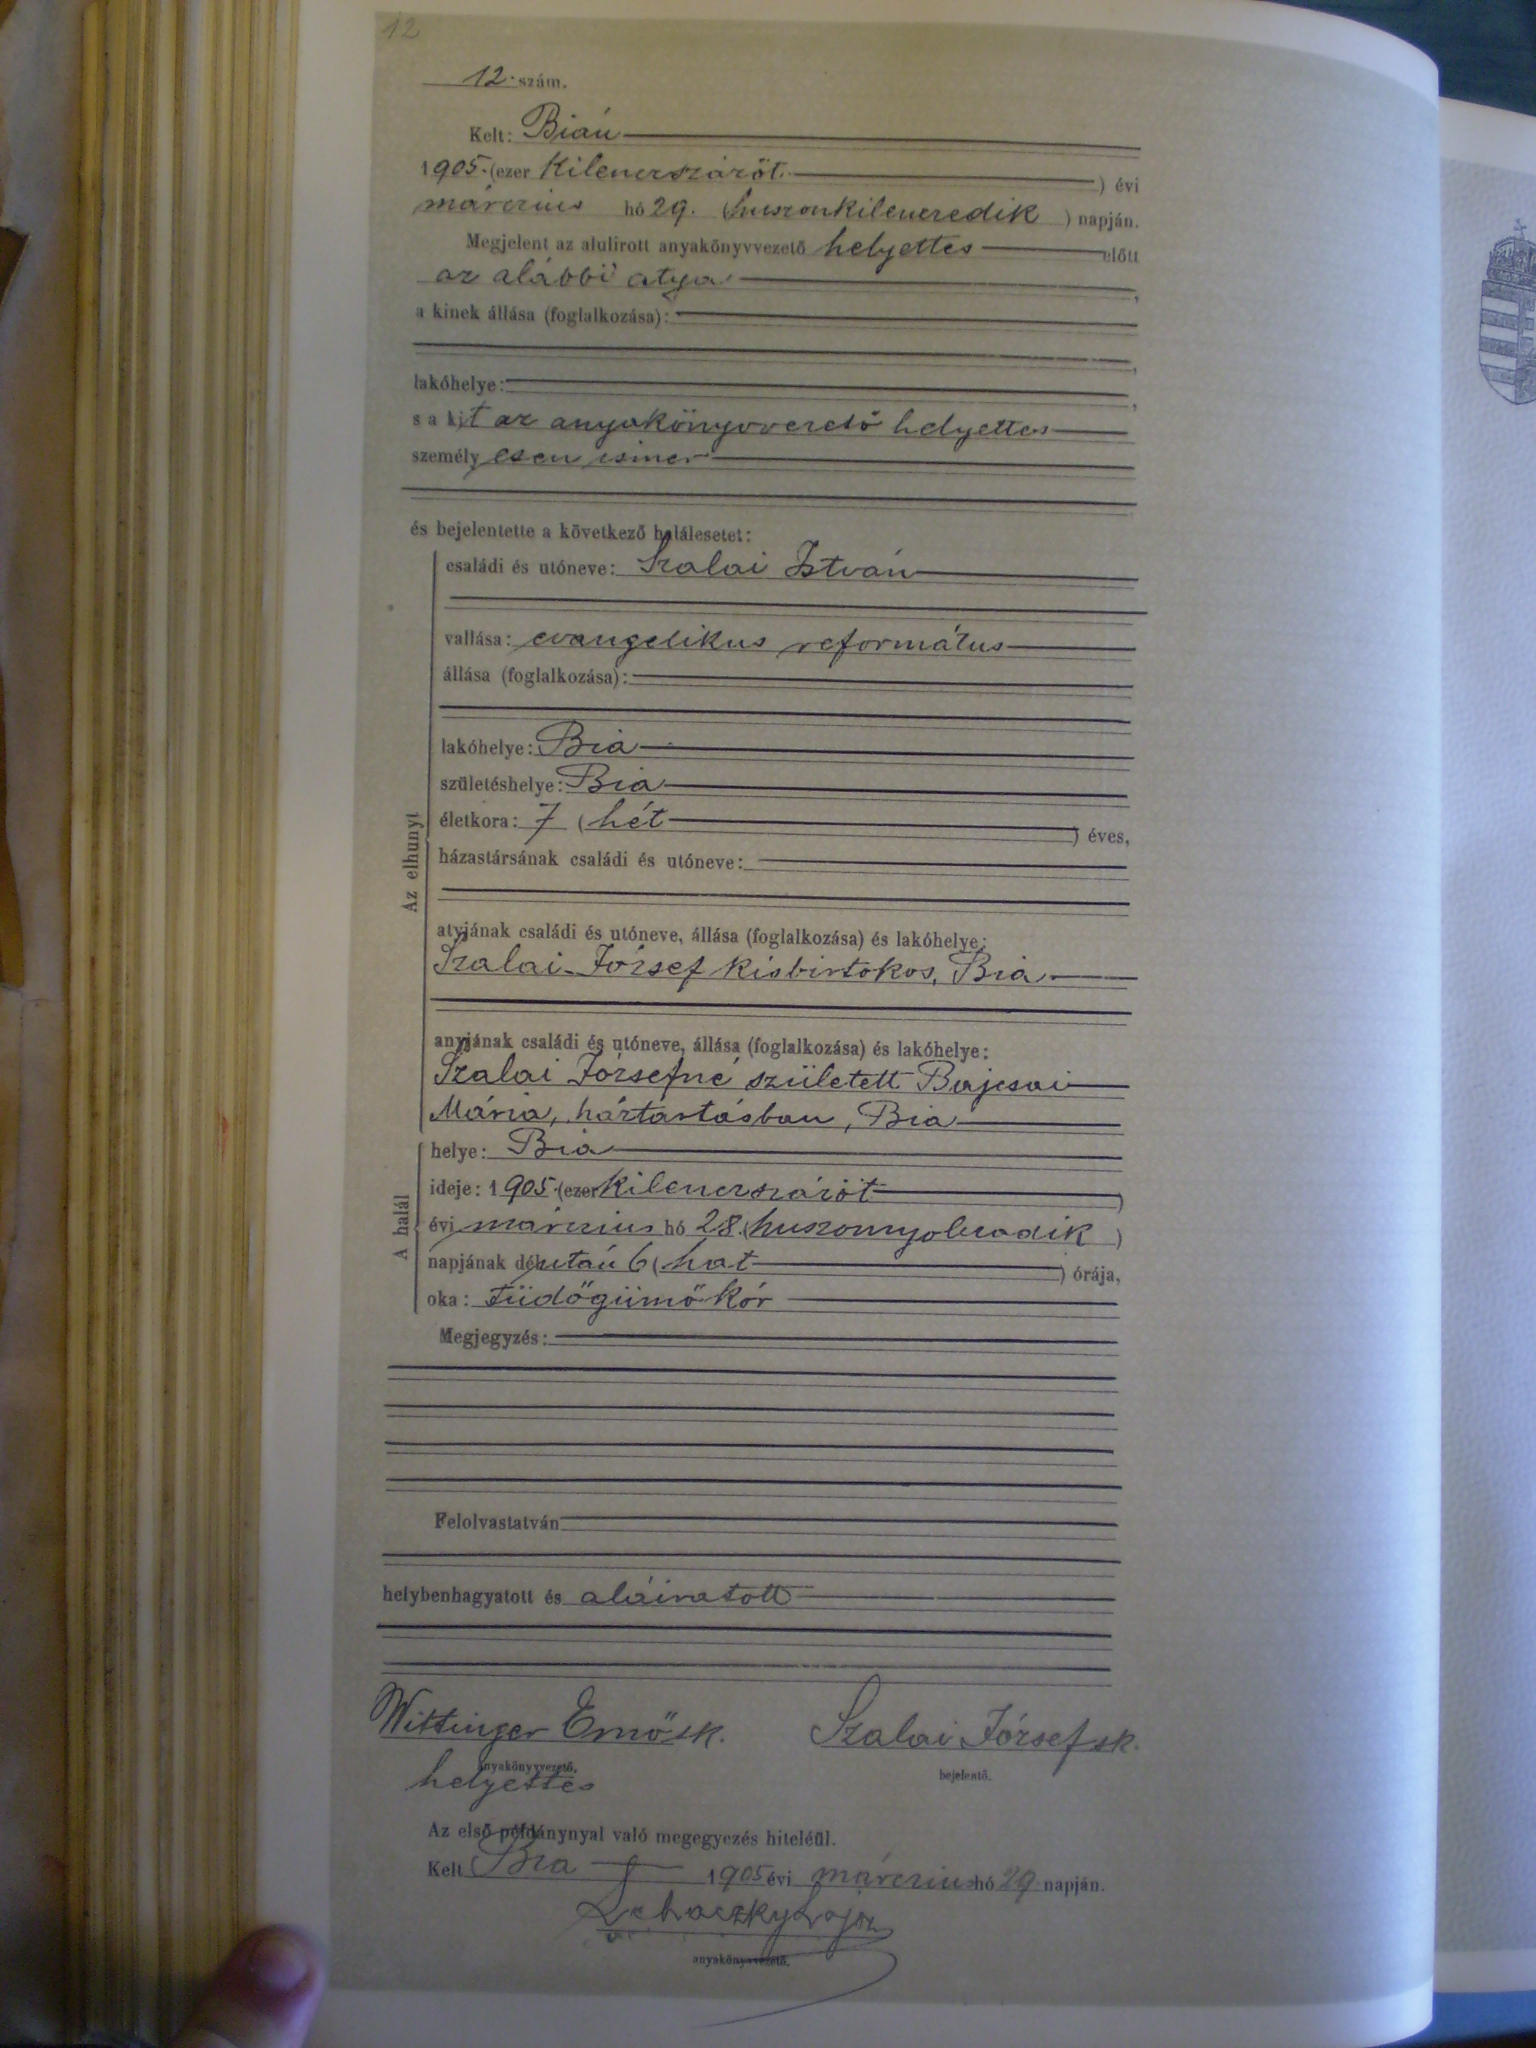 12
12. szám.
Kelt: Bián
1905. (ezer kilenczszázöt. ) évi
márczius hó 29. (huszonkilenczedik ) napján.
Megjelent az alulirott anyakönyvvezető helyettes előtt
az alábbi atya ,
a kinek állása (foglalkozása):
,
lakóhelye: ,
s a kit az anyakönyvvezető helyettes
személyesen ismer
és bejelentette a következő halálesetet:
Az elhunyt
családi és utóneve: Szalai István
vallása: evangelikus református
állása (foglalkozása):
lakóhelye: Bia
születéshelye: Bia
életkora: 7 (hét ) éves,
házastársának családi és utóneve:
atyjának családi és utóneve, állása (foglalkozása) és lakóhelye:
Szalai József kisbirtokos, Bia
anyjának családi és utóneve, állása (foglalkozása) és lakóhelye:
Szalai Józsefné született Bajcsai
Mária, háztartásban, Bia
A halál
helye: Bia
ideje: 1905. (ezer kilenczszázöt )
évi márczius hó 28. (huszonnyolczadik )
napjának délután 6 (hat ) órája,
oka: tüdőgümőkór
Megjegyzés:
Felolvastatván
helybenhagyatott és aláiratott
Wittinger Ernő sk. Szalai József sk.
anyakönyvvezető. bejelentő.
helyettes
Az első példánynyal való megegyezés hiteléül.
Kelt Bia 1905 évi márczius hó 29 napján.
Lajos
anyakönyvvezető.